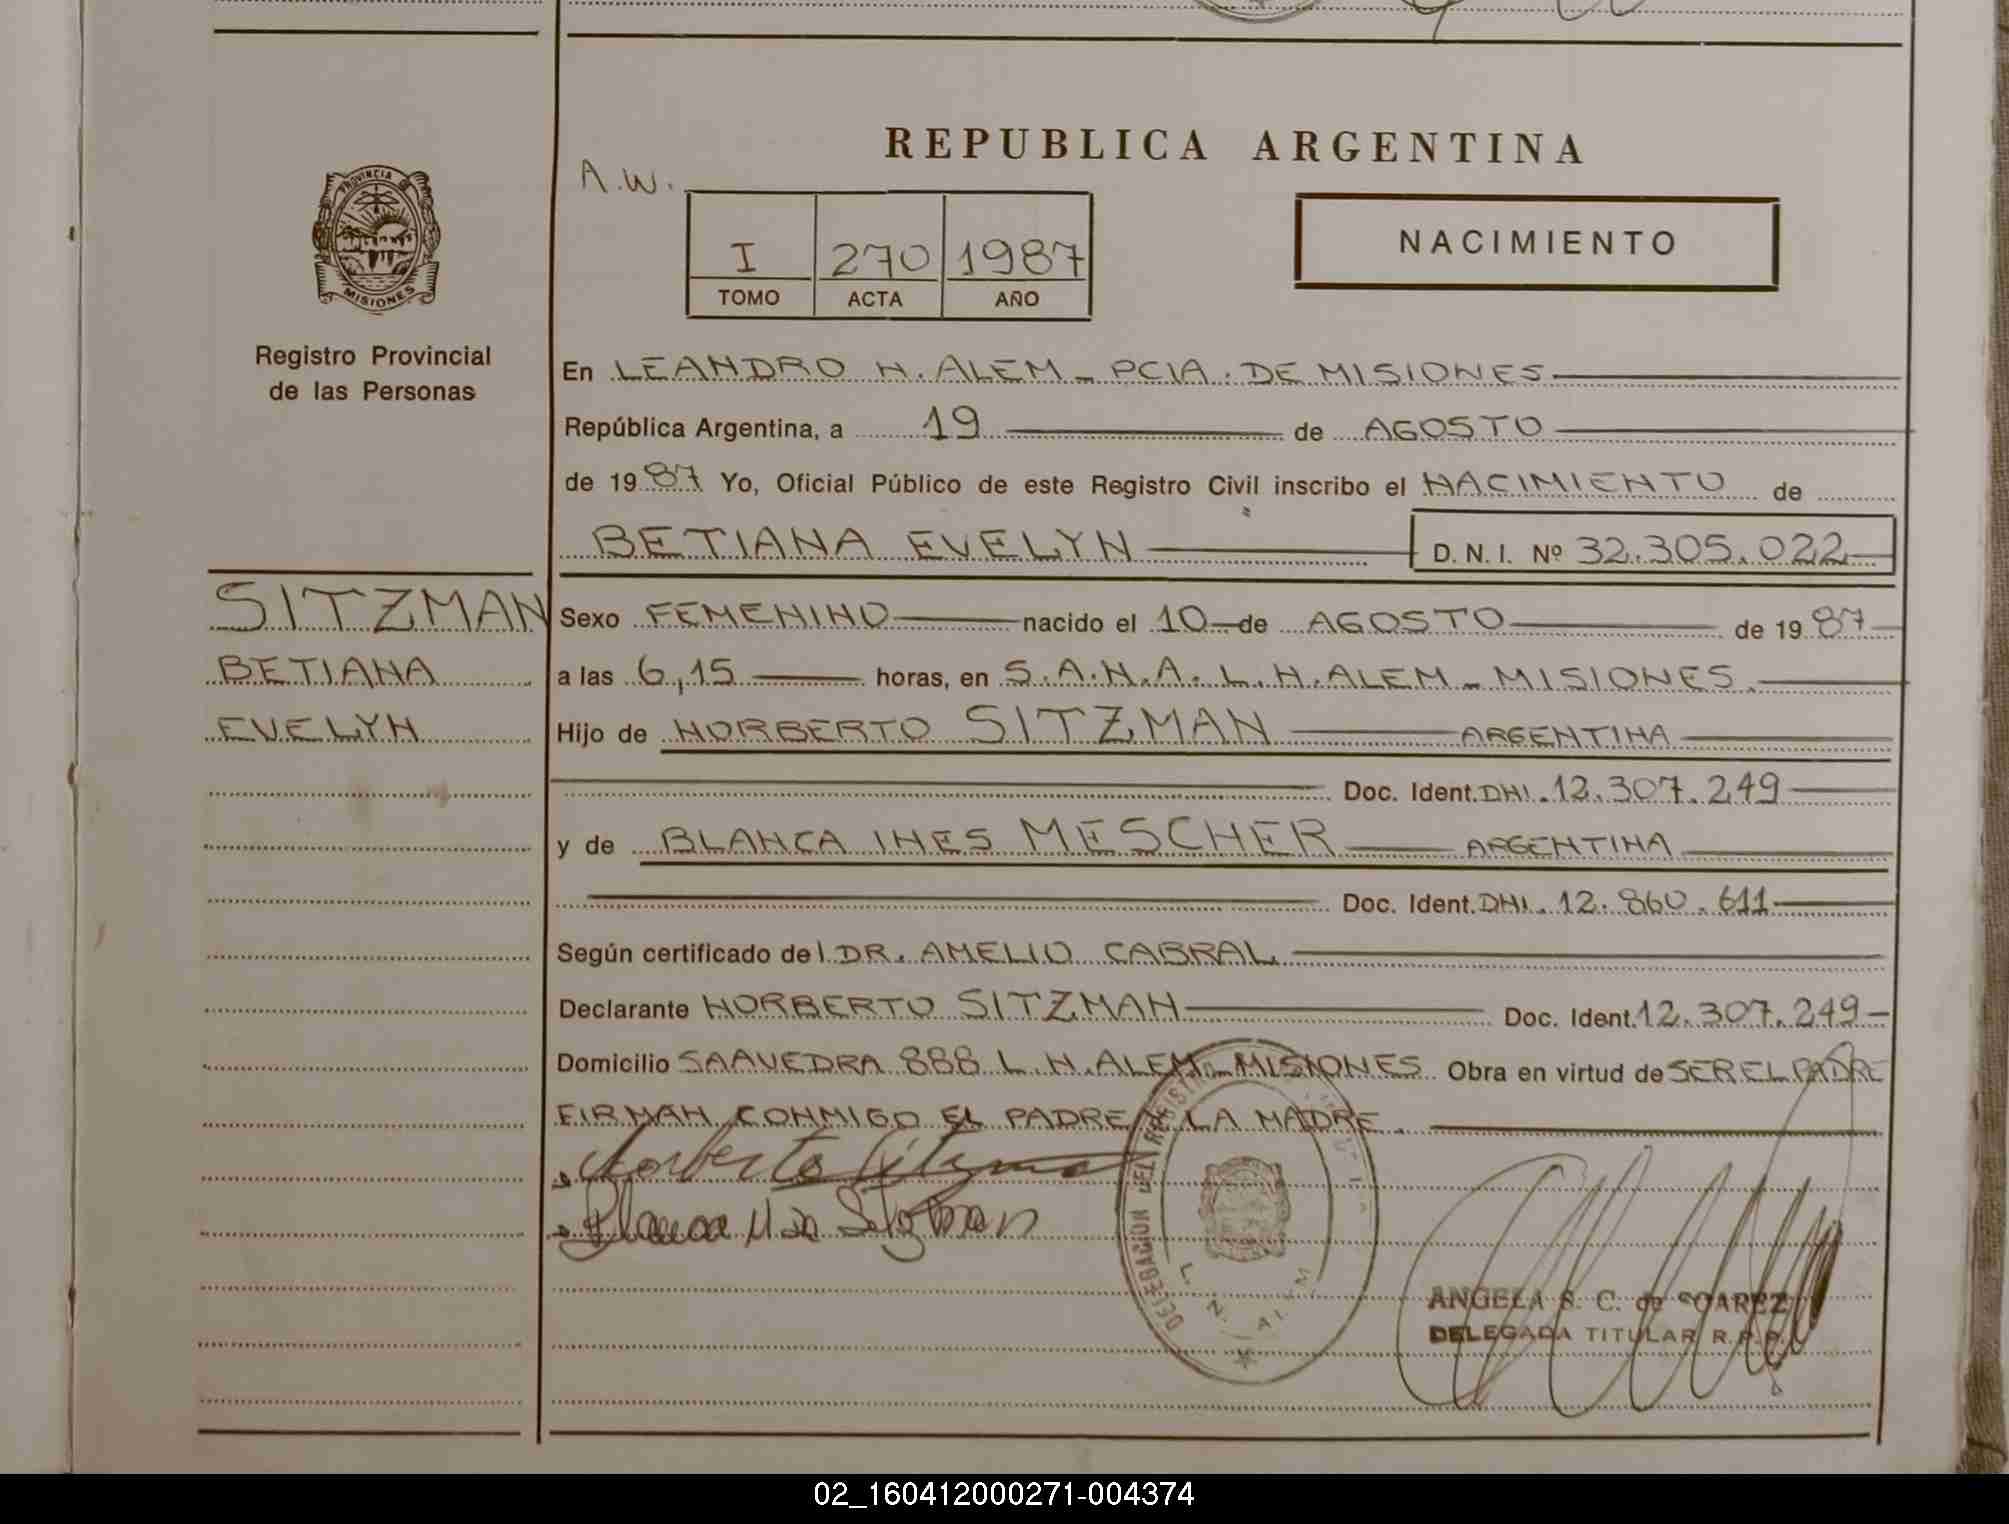 REPUBLICA ARGENTINA
A.W.
I 270 1987
TOMO ACTA AÑO
NACIMIENTO
PROVINCIA DE
MISIONES
Registro Provincial
de las Personas
SITZMAN
BETIANA
EVELYN
En LEANDRO N. ALEM - PCIA. DE MISIONES
República Argentina, a 19 de AGOSTO
de 1987 Yo, Oficial Público de este Registro Civil inscribo el NACIMIENTO de
BETIANA EVELYN D.N.I. Nº 32.305.022
Sexo FEMENINO nacido el 10 de AGOSTO de 1987
a las 6,15 horas, en S.A.N.A. L.N. ALEM - MISIONES.
Hijo de NORBERTO SITZMAN ARGENTINA
Doc. Ident. DNI. 12.307.249
y de BLANCA INES MESCHER ARGENTINA
Doc. Ident. DNI. 12.860.611
Según certificado del DR. AMELIO CABRAL
Declarante NORBERTO SITZMAN Doc. Ident. 12.307.249
Domicilio SAAVEDRA 888 L. N. ALEM - MISIONES Obra en virtud de SER EL PADRE
FIRMAN CONMIGO EL PADRE Y LA MADRE.
Norberto Sitzman
Blanca
DELEGACION DEL REGISTRO
L. N. ALEM
ANGELA S. C. de SUAREZ
DELEGADA TITULAR R.P.P.
02_160412000271-004374